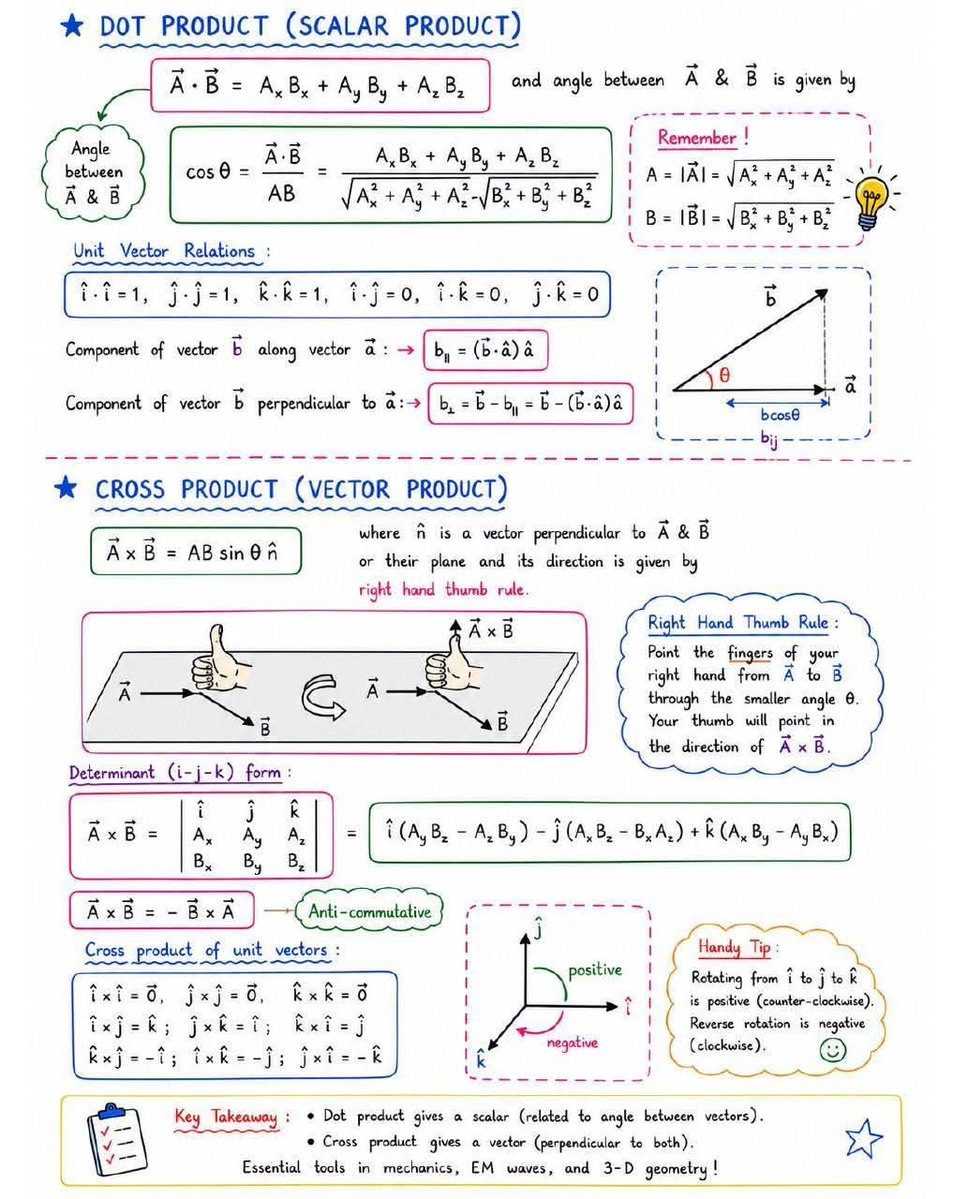 ★ DOT PRODUCT (SCALAR PRODUCT)
A⃗ · B⃗ = AₓBₓ + A_yB_y + A_zB_z and angle between A⃗ & B⃗ is given by
Angle
between
A⃗ & B⃗
cos θ = A⃗·B⃗ / AB = (AₓBₓ + A_yB_y + A_zB_z) / (√(Aₓ² + A_y² + A_z²) - √(Bₓ² + B_y² + B_z²))
Remember !
A = |A⃗| = √(Aₓ² + A_y² + A_z²)
B = |B⃗| = √(Bₓ² + B_y² + B_z²)
Unit Vector Relations :
î·î = 1, ĵ·ĵ = 1, k̂·k̂ = 1, î·ĵ = 0, î·k̂ = 0, ĵ·k̂ = 0
Component of vector b⃗ along vector a⃗ : → b∥ = (b⃗·â) â
Component of vector b⃗ perpendicular to a⃗ :→ b⊥ = b⃗ – b∥ = b⃗ – (b⃗·â) â
b⃗
θ
a⃗
bcosθ
bij
★ CROSS PRODUCT (VECTOR PRODUCT)
A⃗ x B⃗ = AB sin θ n̂
where n̂ is a vector perpendicular to A⃗ & B⃗
or their plane and its direction is given by
right hand thumb rule.
A⃗
B⃗
A⃗ x B⃗
A⃗
B⃗
Right Hand Thumb Rule :
Point the fingers of your
right hand from A⃗ to B⃗
through the smaller angle θ.
Your thumb will point in
the direction of A⃗ x B⃗.
Determinant (i-j-k) form :
A⃗ x B⃗ = | î ĵ k̂ |
| Aₓ A_y A_z |
| Bₓ B_y B_z |
= î (A_yB_z – A_zB_y) – ĵ (AₓB_z – BₓA_z) + k̂ (AₓB_y – A_yBₓ)
A⃗ x B⃗ = – B⃗ x A⃗ → Anti-commutative
Cross product of unit vectors :
î x î = 0⃗, ĵ x ĵ = 0⃗, k̂ x k̂ = 0⃗
î x ĵ = k̂ ; ĵ x k̂ = î ; k̂ x î = ĵ
k̂ x ĵ = –î ; î x k̂ = –ĵ ; ĵ x î = –k̂
ĵ
positive
î
negative
k̂
Handy Tip :
Rotating from î to ĵ to k̂
is positive (counter-clockwise).
Reverse rotation is negative
(clockwise).
Key Takeaway : • Dot product gives a scalar (related to angle between vectors).
• Cross product gives a vector (perpendicular to both).
Essential tools in mechanics, EM waves, and 3-D geometry !